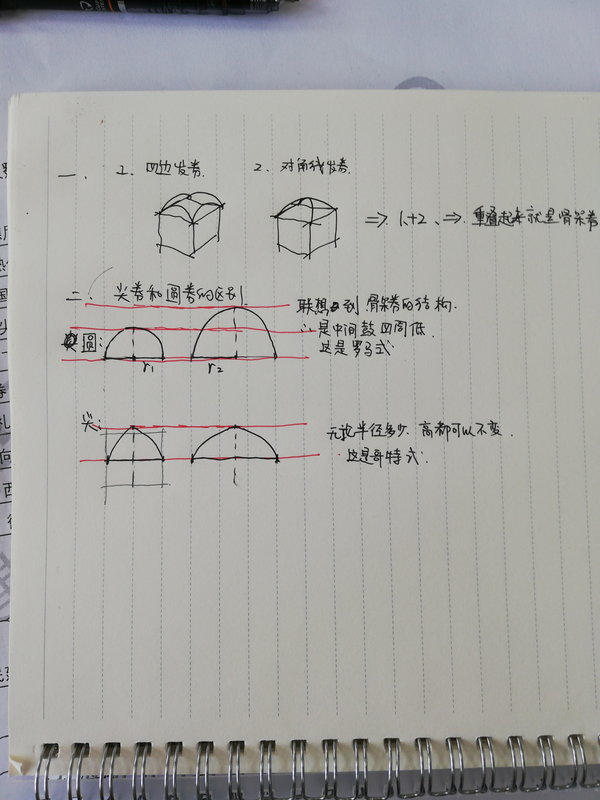 一. 1. 四边发券. 2. 对角线发券. ⇒ 1+2、⇒ 重叠起来就是骨架券
二. 尖券和圆券的区别
联想到骨架券的结构.
∴是中间鼓四周低.
这是罗马式
圆:
r₁ r₂
尖:
无论半径多少, 高都可以不变.
这是哥特式.